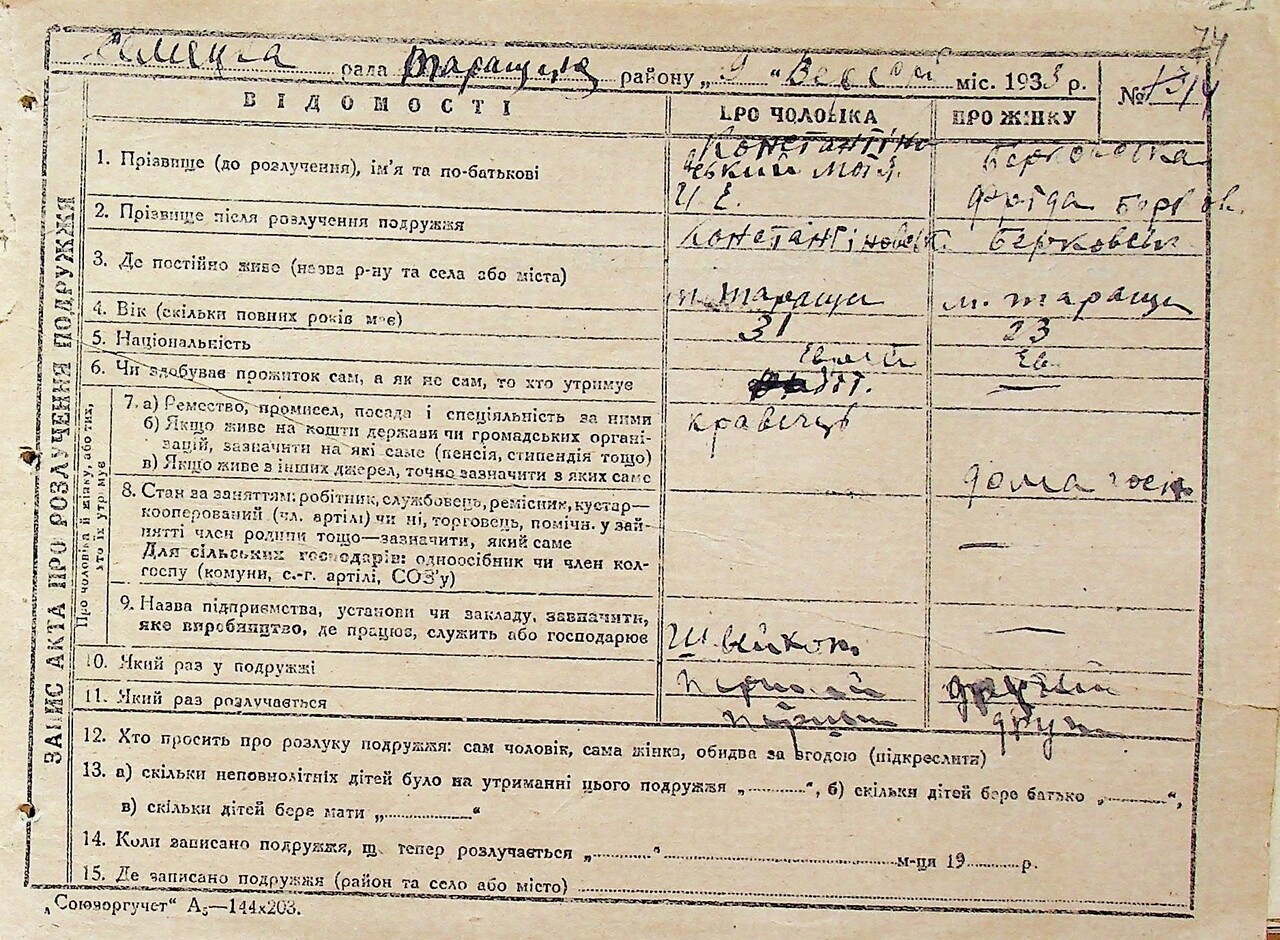 74
рада Таращанс району „ 9 “ Вересня міс. 1933 р.
№ 13/4
ВІДОМОСТІ ПРО ЧОЛОВІКА ПРО ЖІНКУ
ЗАПИС АКТА ПРО РОЗЛУЧЕННЯ ПОДРУЖЖЯ
1. Прізвище (до розлучення), ім'я та по-батькові
Константіно
вський Мотя
И. Е.
Берковська
Фрейда
2. Прізвище після розлучення подружжя
Константіновськ. Берковськ
3. Де постійно живе (назва р-ну та села або міста)
м. Таращи м. Таращи
4. Вік (скільки повних років має) 31 23
5. Національність Еврей Ев.
6. Чи здобував прожиток сам, а як не сам, то хто утримує —
Про чоловіка й жінку, або тих,
хто їх утримує
7. а) Ремество, промисел, посада і спеціяльність за ними
б) Якщо живе на кошти держави чи громадських органі-
зацій, зазначити на які саме (пенсія, стипендія тощо)
в) Якщо живе з інших джерел, точно зазначити з яких саме
кравець
дома госп
8. Стан за заняттям: робітник, службовець, ремісник, кустар—
кооперований (чл. артілі) чи ні, торговець, помічн. у зай-
нятті член родини тощо—зазначити, який саме
Для сільських господарів: одноосібник чи член кол-
госпу (комуни, с.-г. артілі, СОЗ'у)
—
9. Назва підприємства, установи чи закладу, зазначити,
яке виробництво, де працює, служить або господарює
Швейком —
10. Який раз у подружжі первий другий
11. Який раз розлучається первий друг
12. Хто просить про розлуку подружжя: сам чоловік, сама жінка, обидва за згодою (підкреслити)
13. а) скільки неповнолітніх дітей було на утриманні цього подружжя „..........“, б) скільки дітей бере батько „..........“,
в) скільки дітей бере мати „..............“
14. Коли записано подружжя, що тепер розлучається „..........“..............................м-ця 19..........р.
15. Де записано подружжя (район та село або місто) ..............................
„Союзоргучет“ А₅—144х203.